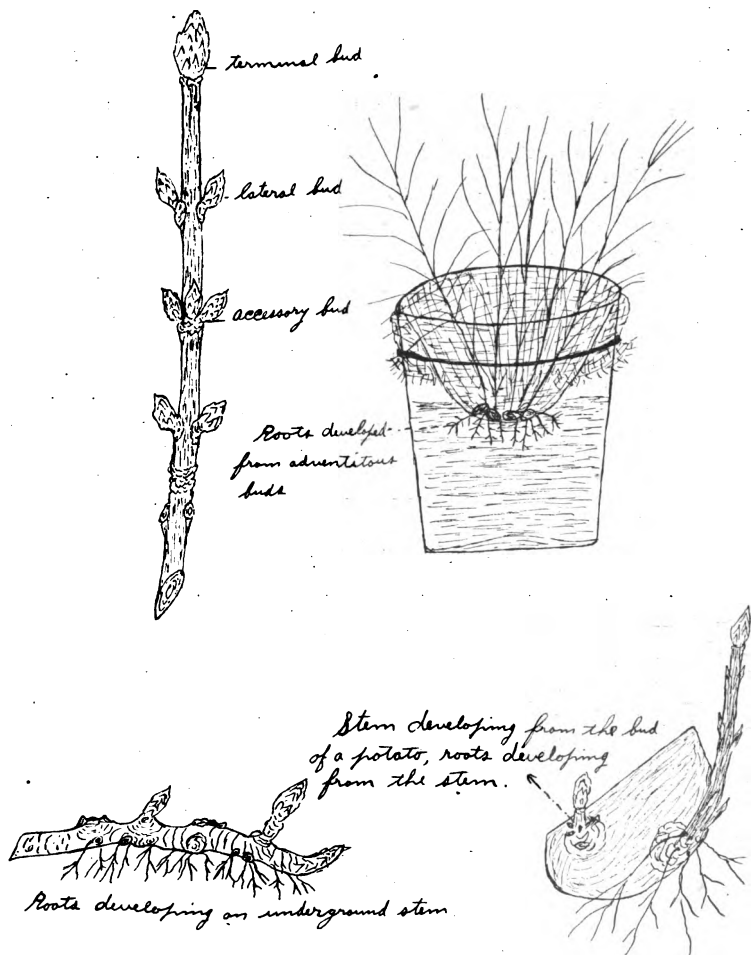 terminal bud
lateral bud
accessory bud
Roots developed
from adventitous
buds
Stem developing from the bud
of a potato, roots developing
from the stem.
Roots developing on underground stem